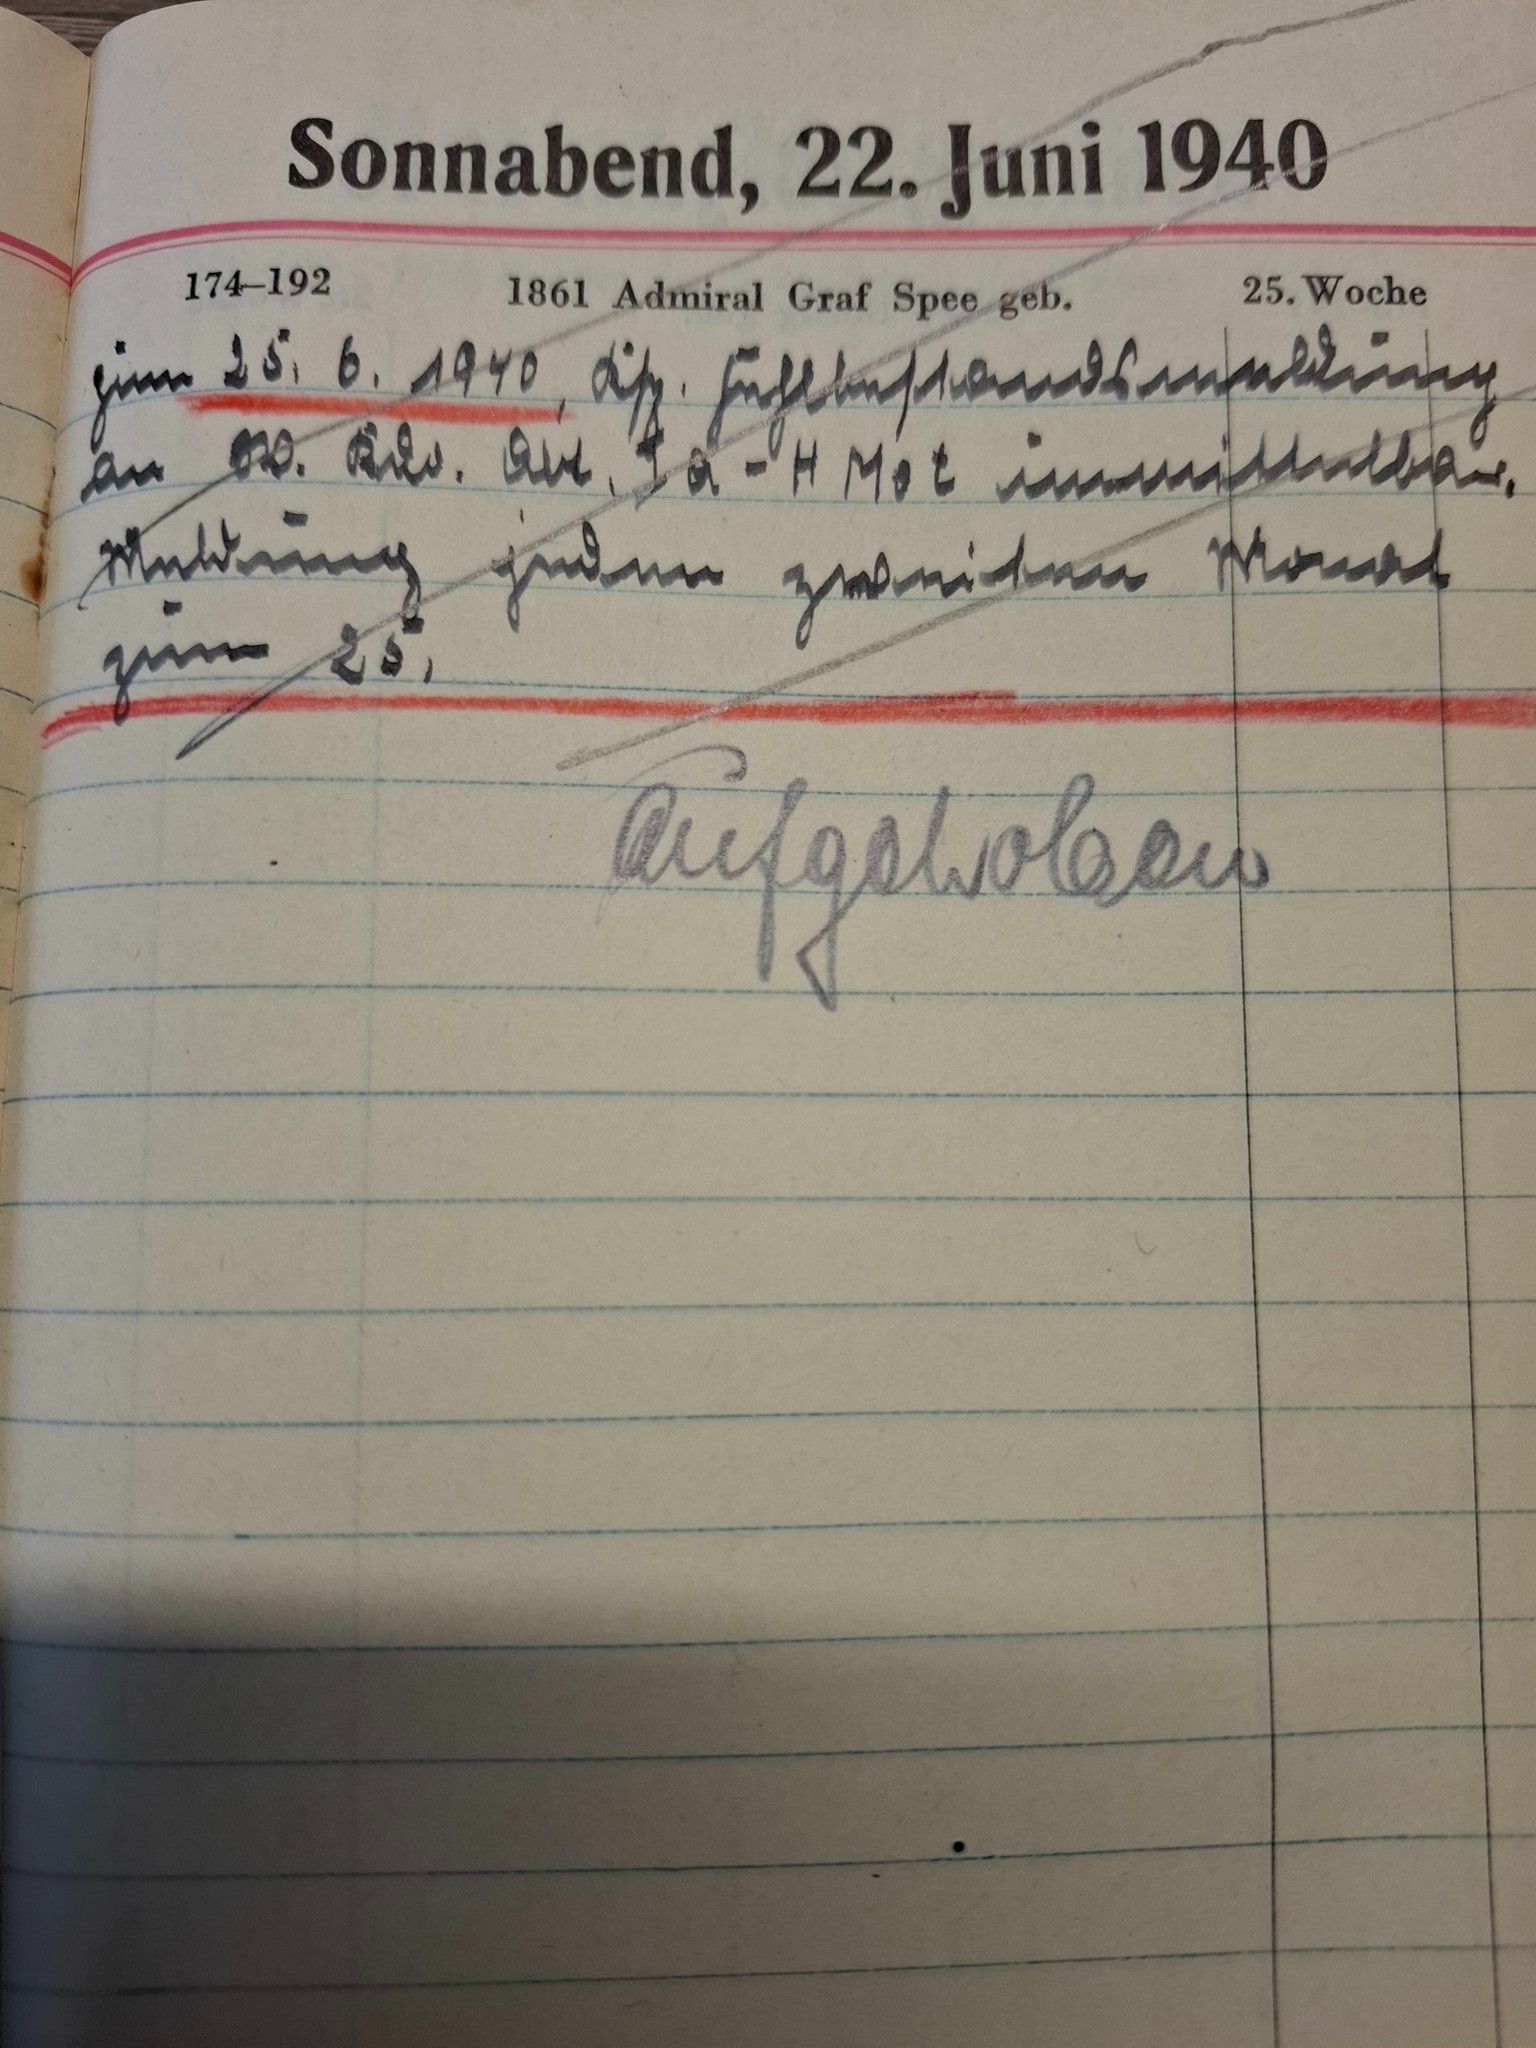 Sonnabend, 22. Juni 1940
174–192 1861 Admiral Graf Spee geb. 25. Woche
zum 25. 6. 1940, Kfz. Fehlbestandsmeldung
an W. Kdo. Abt. I a - H Mot unmittelbar.
Meldung jeden zweiten Monat
zum 25.
Aufgehoben